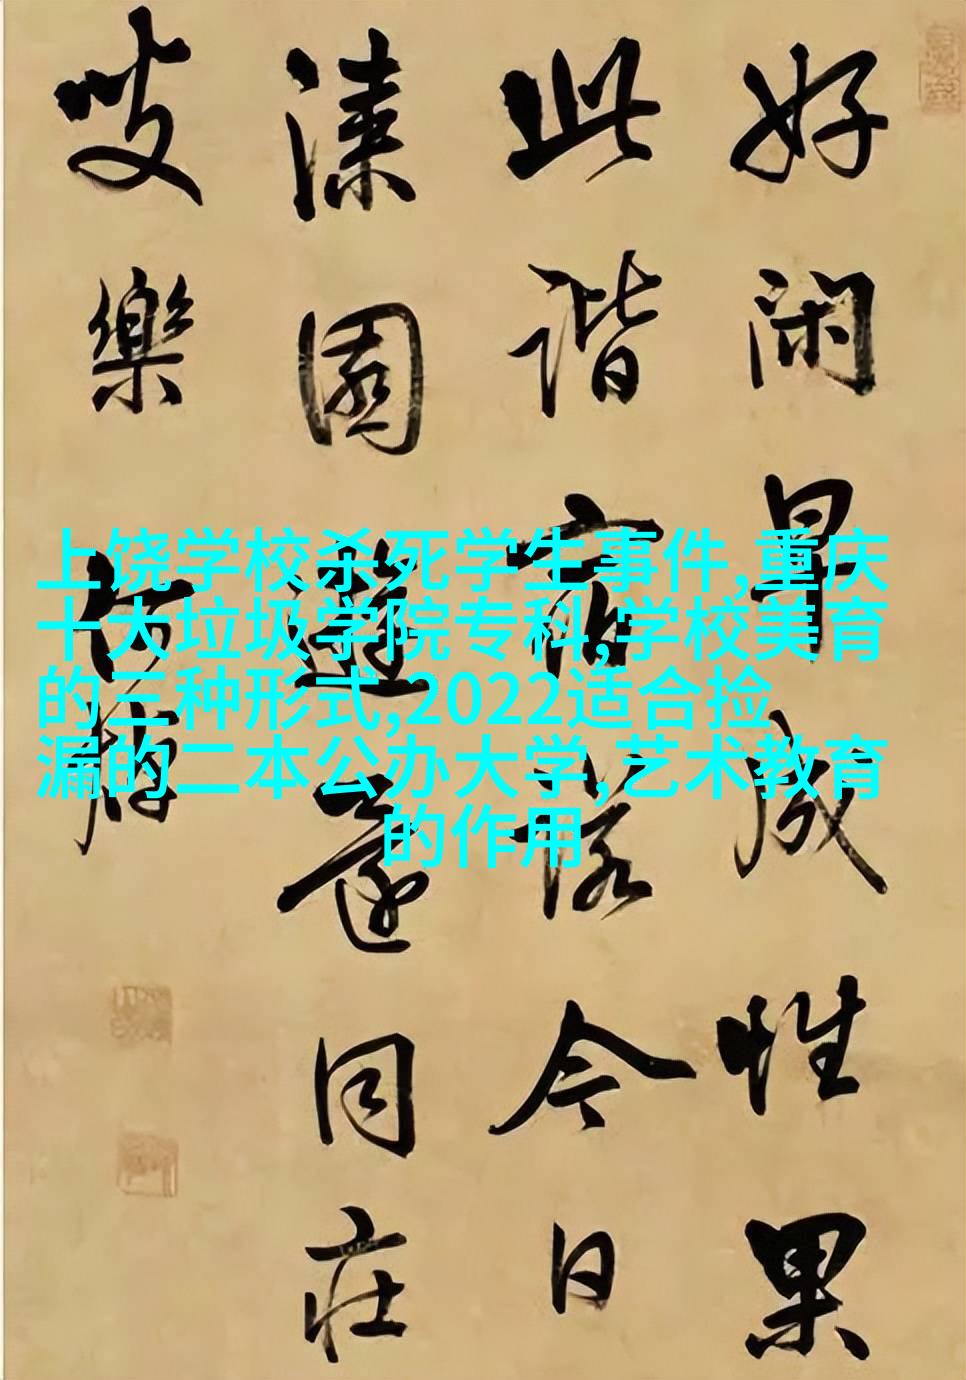 好闲早成性果
此諧宿諾今日
漆園遊還同庄
叟樂
上饶学校杀死学生事件,重庆
十大垃圾学院专科,学校美育
的三种形式,2022适合捡
漏的二本公办大学,艺术教育
的作用